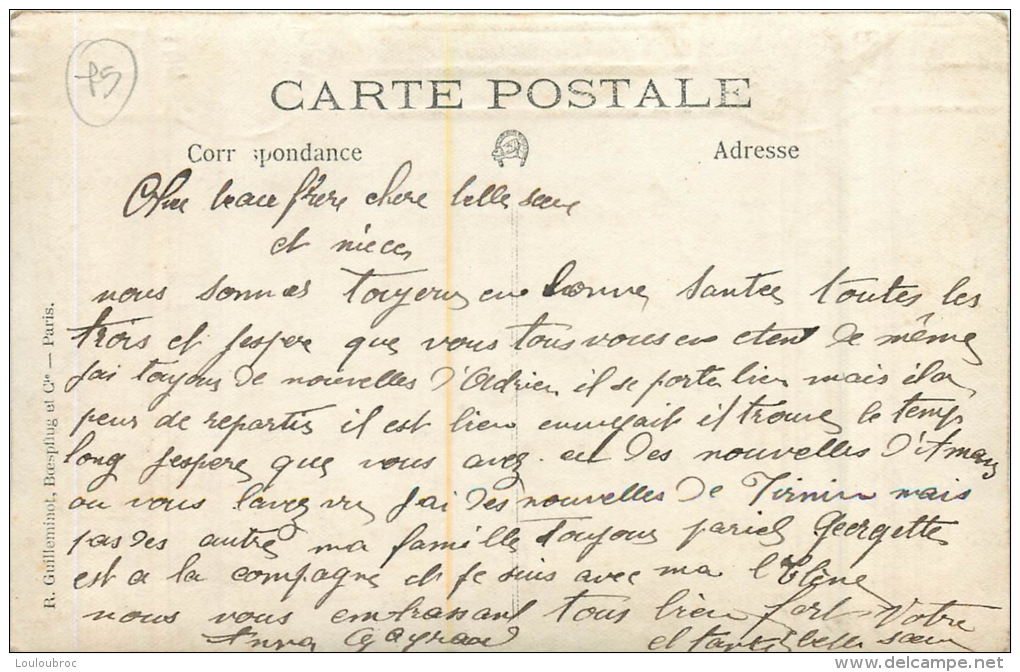 PS
CARTE POSTALE
Corr spondance
Adresse
Cher beau frère chere belle seur
et nieces
nous sommes toujours en bonne santee toutes les
trois et jespere que vous tous vous en etes de même
jai toujours de nouvelles d'Adrien il se porte bien mais il a
peur de repartir il est bien ennuyait il trouve le temp
long jespere que vous avez eu des nouvelles d'Amans
ou vous lavez vu jai des nouvelles de Firmin mais
pas des autres ma famille toujours pareil Georgette
est a la compagne et je suis avec ma
nous vous embrassant tous bien fort Votre
Anna Gayraud et tante belle sœur
R. Guilleminot, Bœspflug et Cie — Paris.
Louloubroc
http://www.delcampe.net